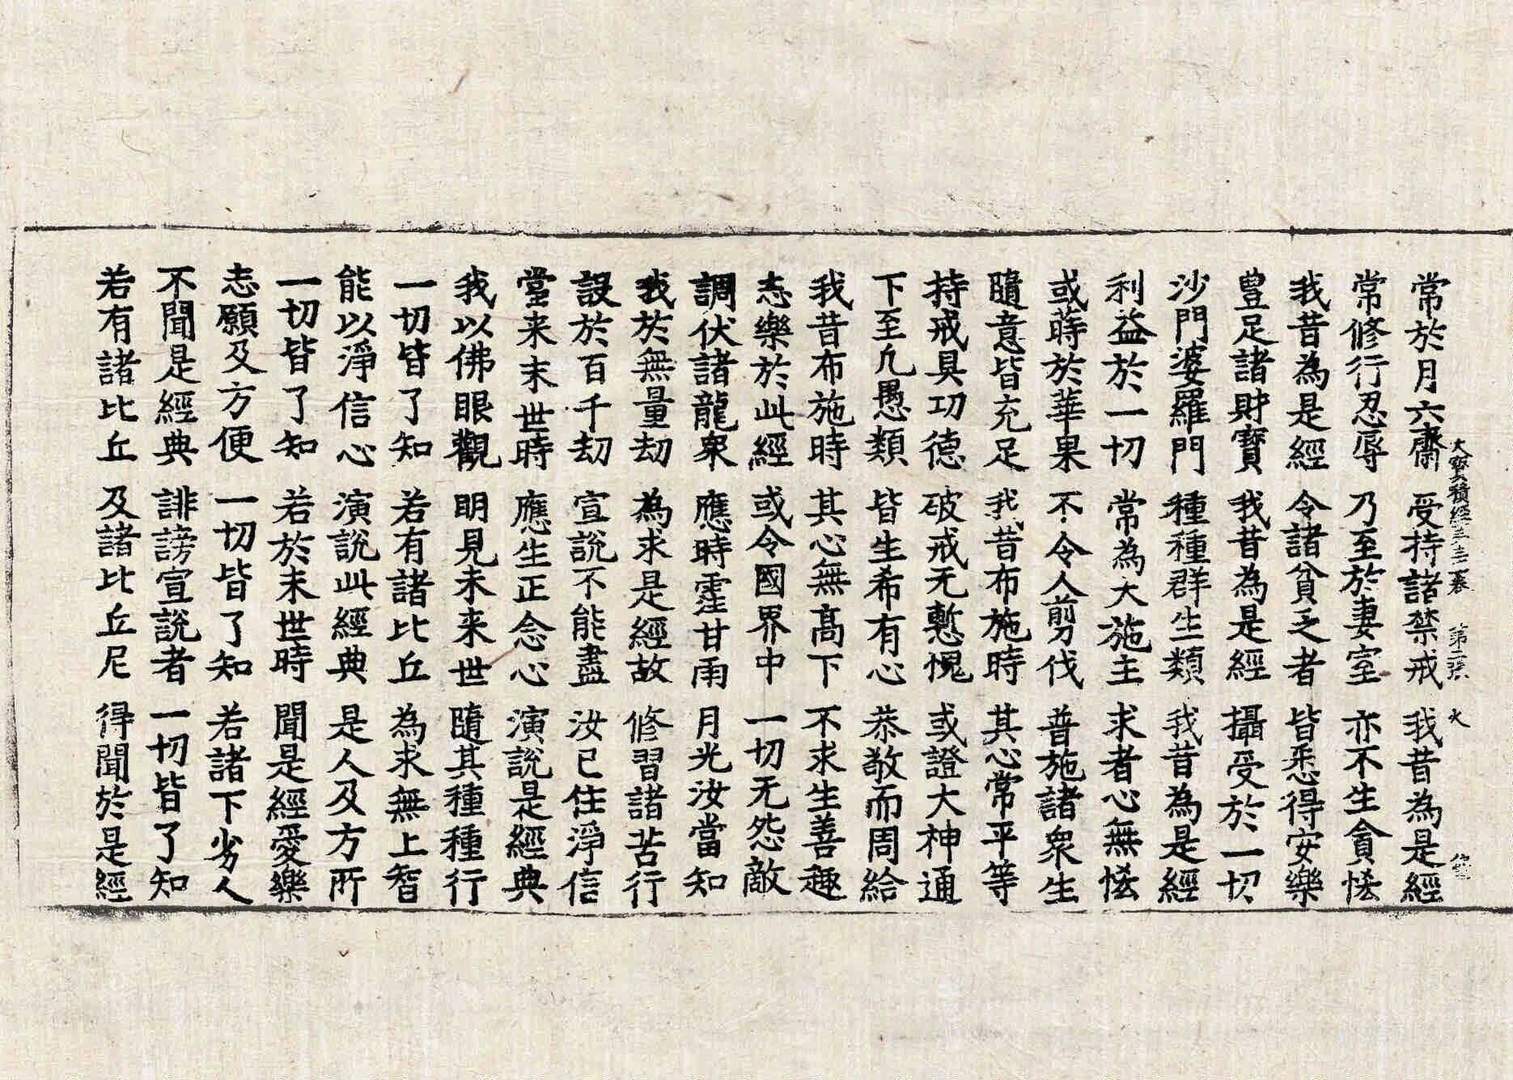 常於月六齋 受持諸禁戒 我昔為是經
大寶積經 第 火
常修行忍辱 乃至於妻室 亦不生貪悋
我昔為是經 令諸貧乏者 皆悉得安樂
豊足諸財寶 我昔為是經 攝受於一切
沙門婆羅門 種種群生類 我昔為是經
利益於一切 常為大施主 求者心無悋
或蒔於華果 不令人剪伐 普施諸衆生
隨意皆充足 我昔布施時 其心常平等
持戒具功德 破戒无慙愧 或證大神通
下至凢愚類 皆生希有心 恭敬而周給
我昔布施時 其心無髙下 不求生善趣
志樂於此經 或令國界中 一切无怨敵
調伏諸龍衆 應時霔甘雨 月光汝當知
我於無量劫 為求是經故 修習諸苦行
設於百千劫 宣說不能盡 汝已住淨信
當来末世時 應生正念心 演說是經典
我以佛眼觀 明見未来世 隨其種種行
一切皆了知 若有諸比丘 為求無上智
能以淨信心 演說此經典 是人及方所
一切皆了知 若於末世時 聞是經愛樂
志願及方便 一切皆了知 若諸下劣人
不聞是經典 誹謗宣說者 一切皆了知
若有諸比丘 及諸比丘尼 得聞於是經